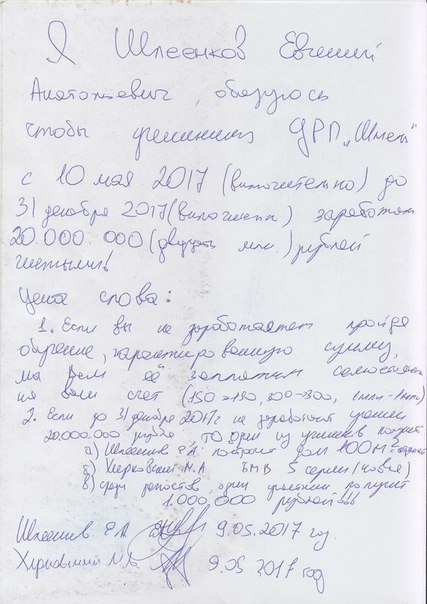 Я Шлеенков Евгений
Анатольевич, обязуюсь
чтобы УРП „Шмель"
с 10 мая 2017 (включительно) до
31 декабря 2017 (включит.) заработал
20.000.000 (двадцать млн.) рублей
чистыми!
Цена слова:
1. Если вы не заработаете пройдя
обучение, гарантированную сумму,
мы Вам её заплатим самостоят
на ваш счет (150=150, 300=300, 1млн=1млн)
2. Если до 31 декабря 2017г не заработают
20.000.000 рублей то один из учеников получит
а) Шлеенков Е.А. дом 100 м²
б) Херковский М.А БМВ 5 серии (новая)
в) среди репостов один участник получит
1.000.000 рублей!!!
Шлеенков Е.А. 9.05.2017 год.
М.А. 9.05 2017 год